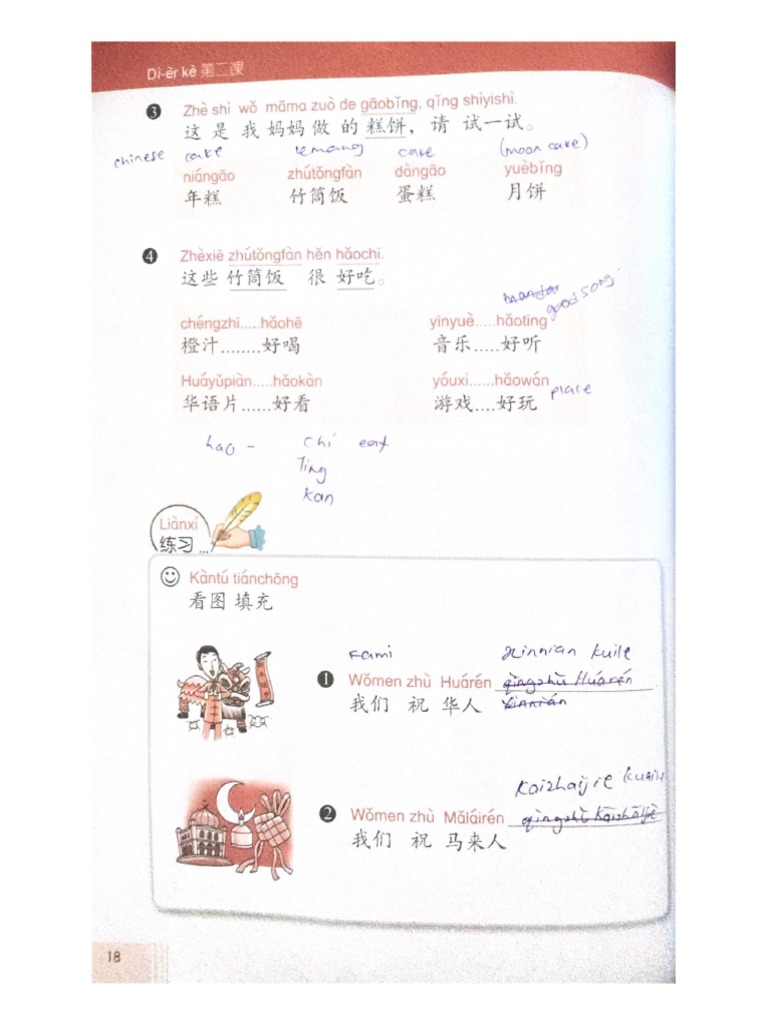 Dì-èr kè 第二课
❸ Zhè shì wǒ māma zuò de gāobǐng, qǐng shìyishì.
这 是 我 妈妈 做 的 糕饼，请 试一试。
chinese cake lemang cake (moon cake)
niángāo zhútǒngfàn dàngāo yuèbǐng
年糕 竹筒饭 蛋糕 月饼
❹ Zhèxiē zhútǒngfàn hěn hǎochi.
这些 竹筒饭 很 好吃。
good song
chéngzhi.....hǎohē yīnyuè.....hǎoting
橙汁........好喝 音乐.....好听
Huáyǔpiàn.....hǎokàn yóuxì......hǎowán place
华语片......好看 游戏....好玩
hao - chi eat
Ting
kan
Liànxí
练习...
Kàntú tiánchōng
看图 填充
kami xinnian kuile
❶ Wǒmen zhù Huárén qingzhù Huárén
我们 祝 华人 xinnián
kaizhaijie
❷ Wǒmen zhù Mǎláirén qingzhù Kaizhāijié
我们 祝 马来人
18